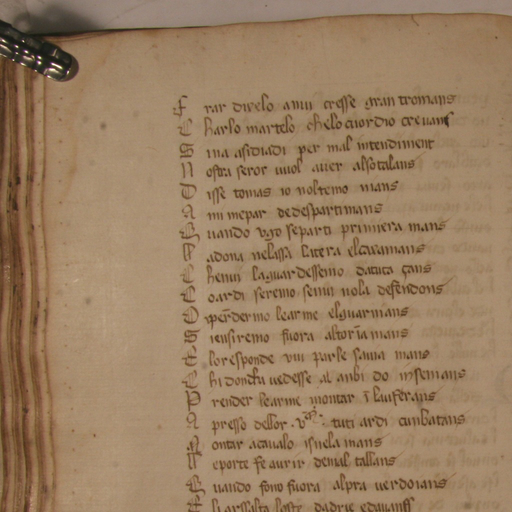 F rar diuelo amu cresse gran tromans
C harlo martelo chelo cuordio creuans
S ina asidiadi per mal intendiment
N ostra seror uuol auer alsotalans
D isse tomas io noltemo mans
A mi mepar dedespartimans
Q uando ugo separti primiera mans
M adona nelassa litera elcauamans
C henui laguardessemo datuta çans
C oardi seremo senui nola defendons
O r perdermo learme elguarmans
S iensiremo fuora altoria mans
E lo responde uui parle sauia mans
C hi donetu uedesse al anbi do insemans
P render learme montar i lauferans
A presso dellor tuti ardi conbatans
M ontar acaualo isnela mans
L eporte fe aurir demal tallans
Q uando fono fuora alpra uerdoians